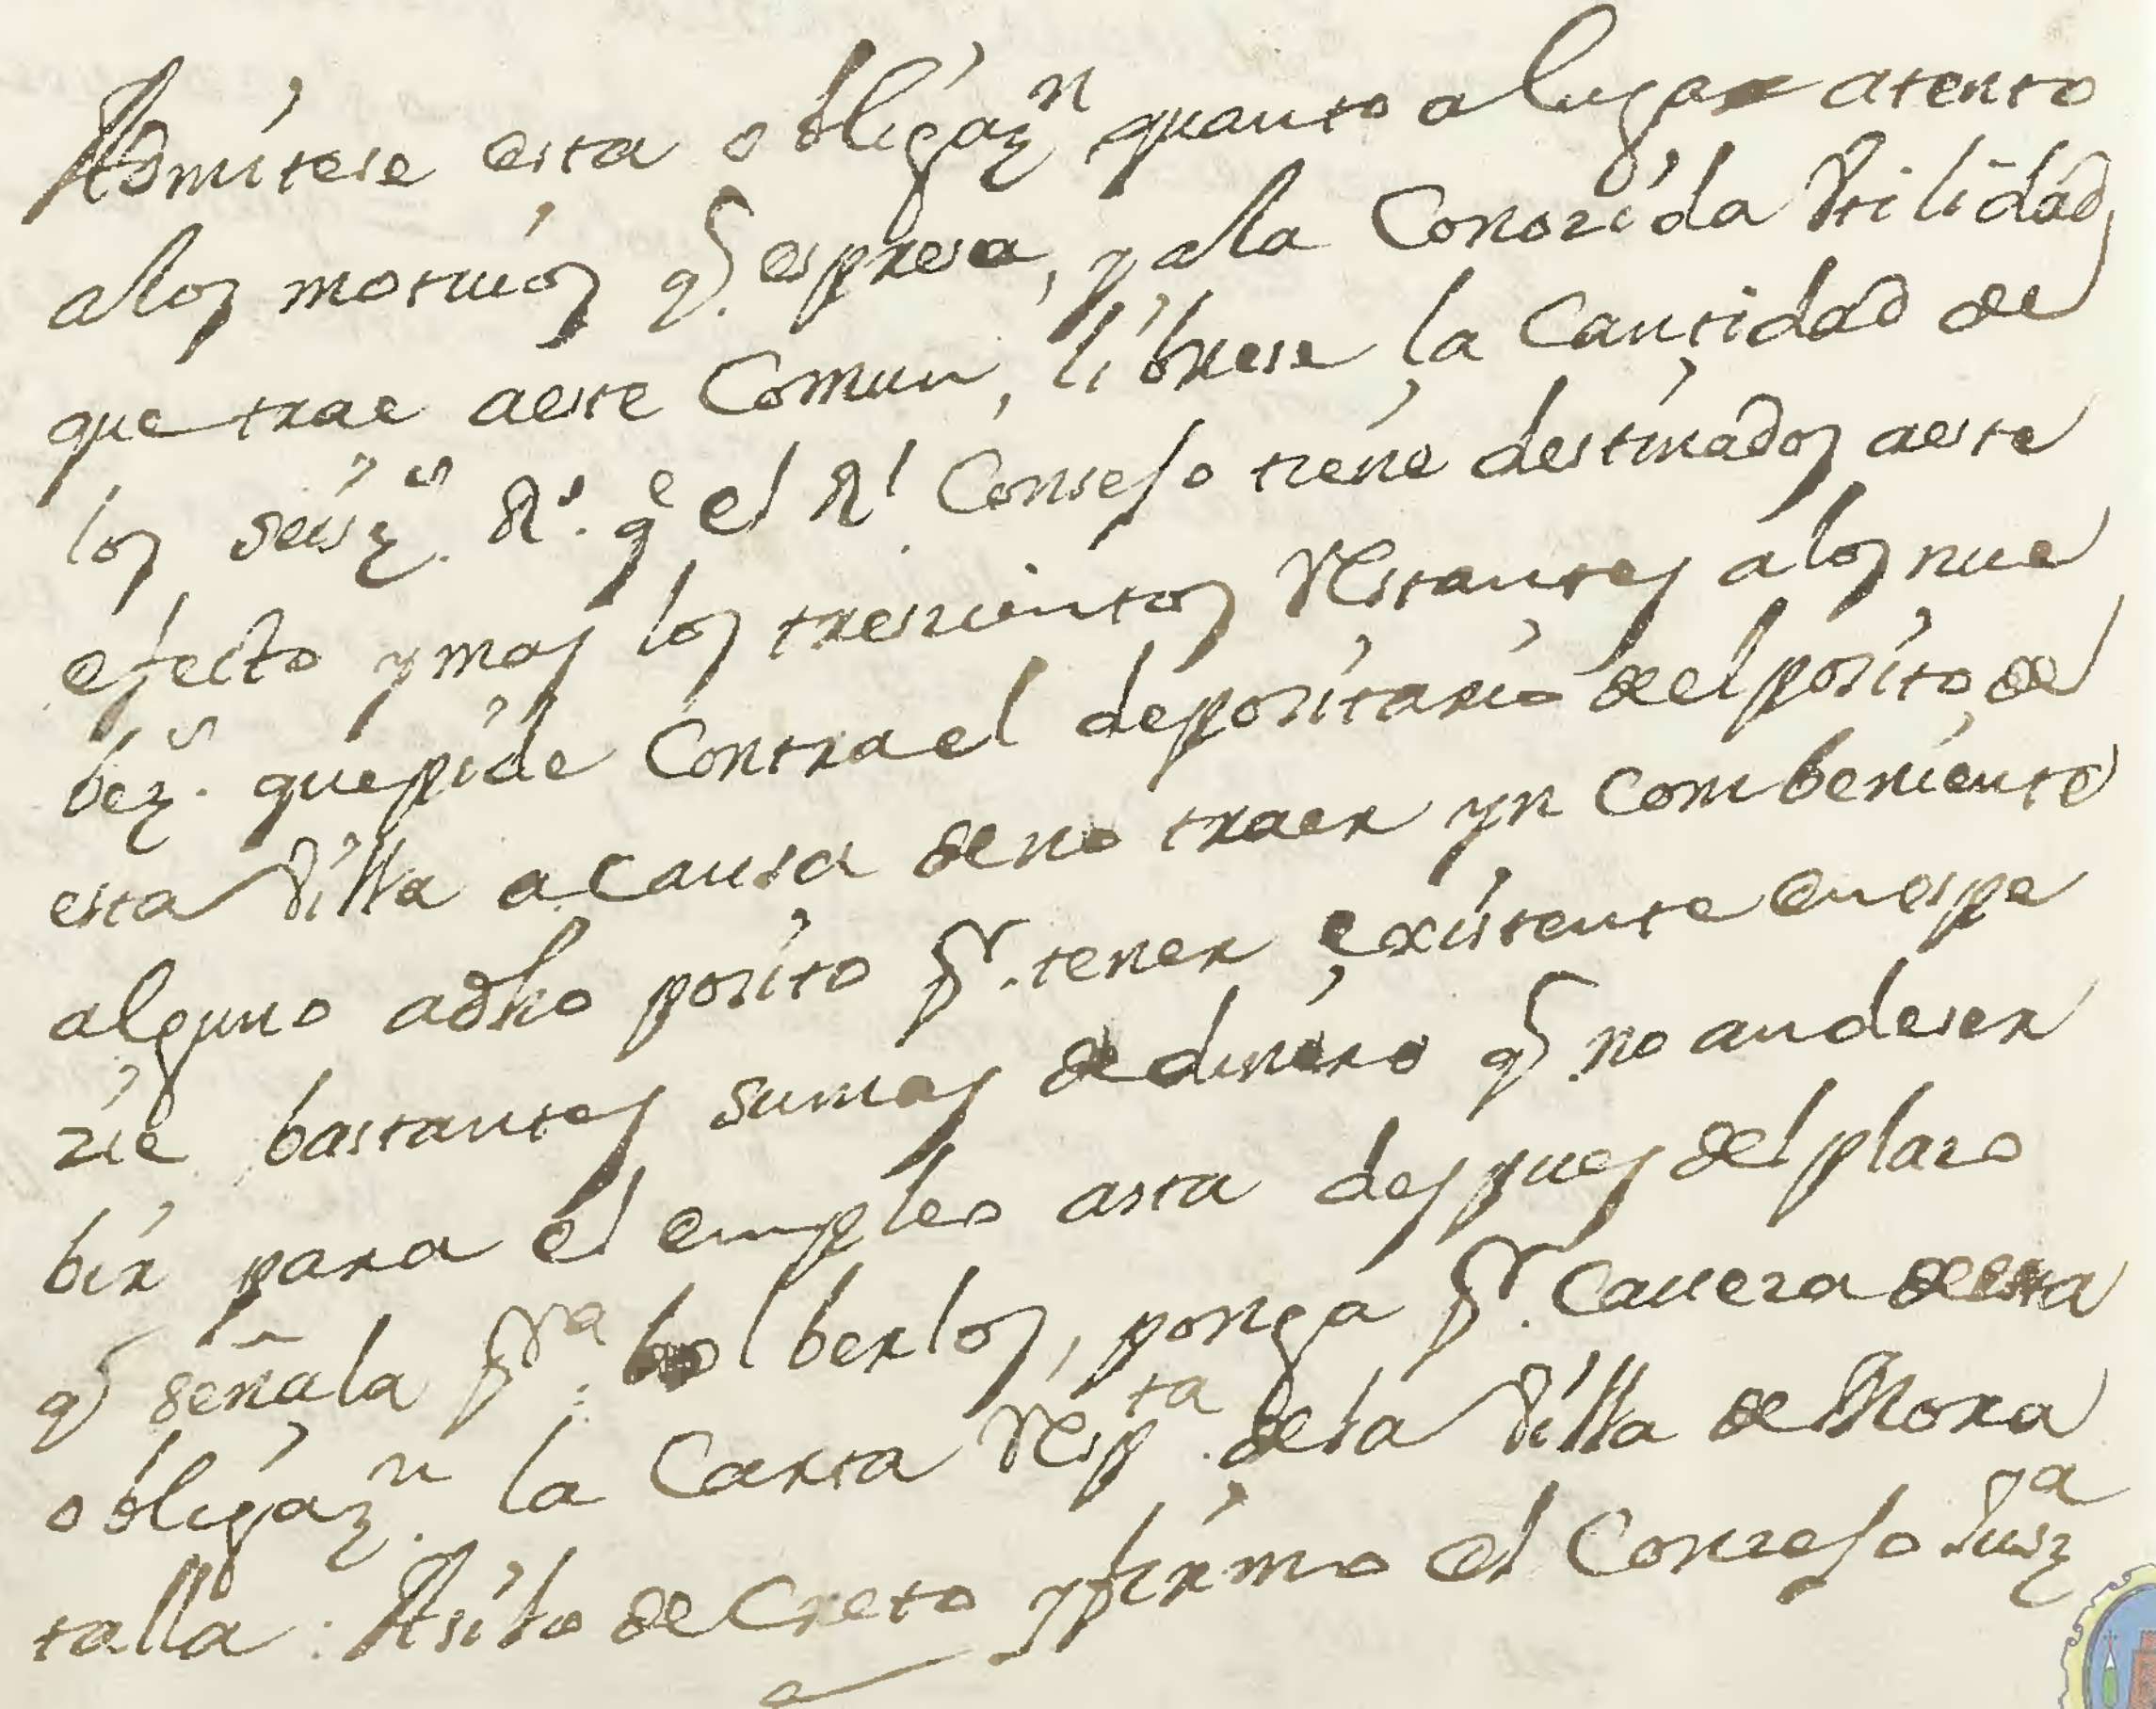 Admitese esta obligazn quanto a lugar atento
alos motiuos q. espresa, y ala Conozida Vtilidad
que trae aeste Comun, librese la Cantidad de
los seisz.s Rs. qe el Rl. Consejo tiene destinados aeste
efecto y mas los tresuientos Restantes alos nue
bez.s que pide Contra el depositario del posito de
esta Villa a Causa de no traer yn Combeniente
alguno adho posito pr. tener existente en espe
zie bastantes sumas de dinero q. no an deser
bir para el empleo asta despues del plazo
q señala pra. bolberlos, ponga pr. Caueza desta
obligazn. la Carta Respta. dela Villa de Mora
talla. Asilo de Creto y firmo el Conzejo Jusza